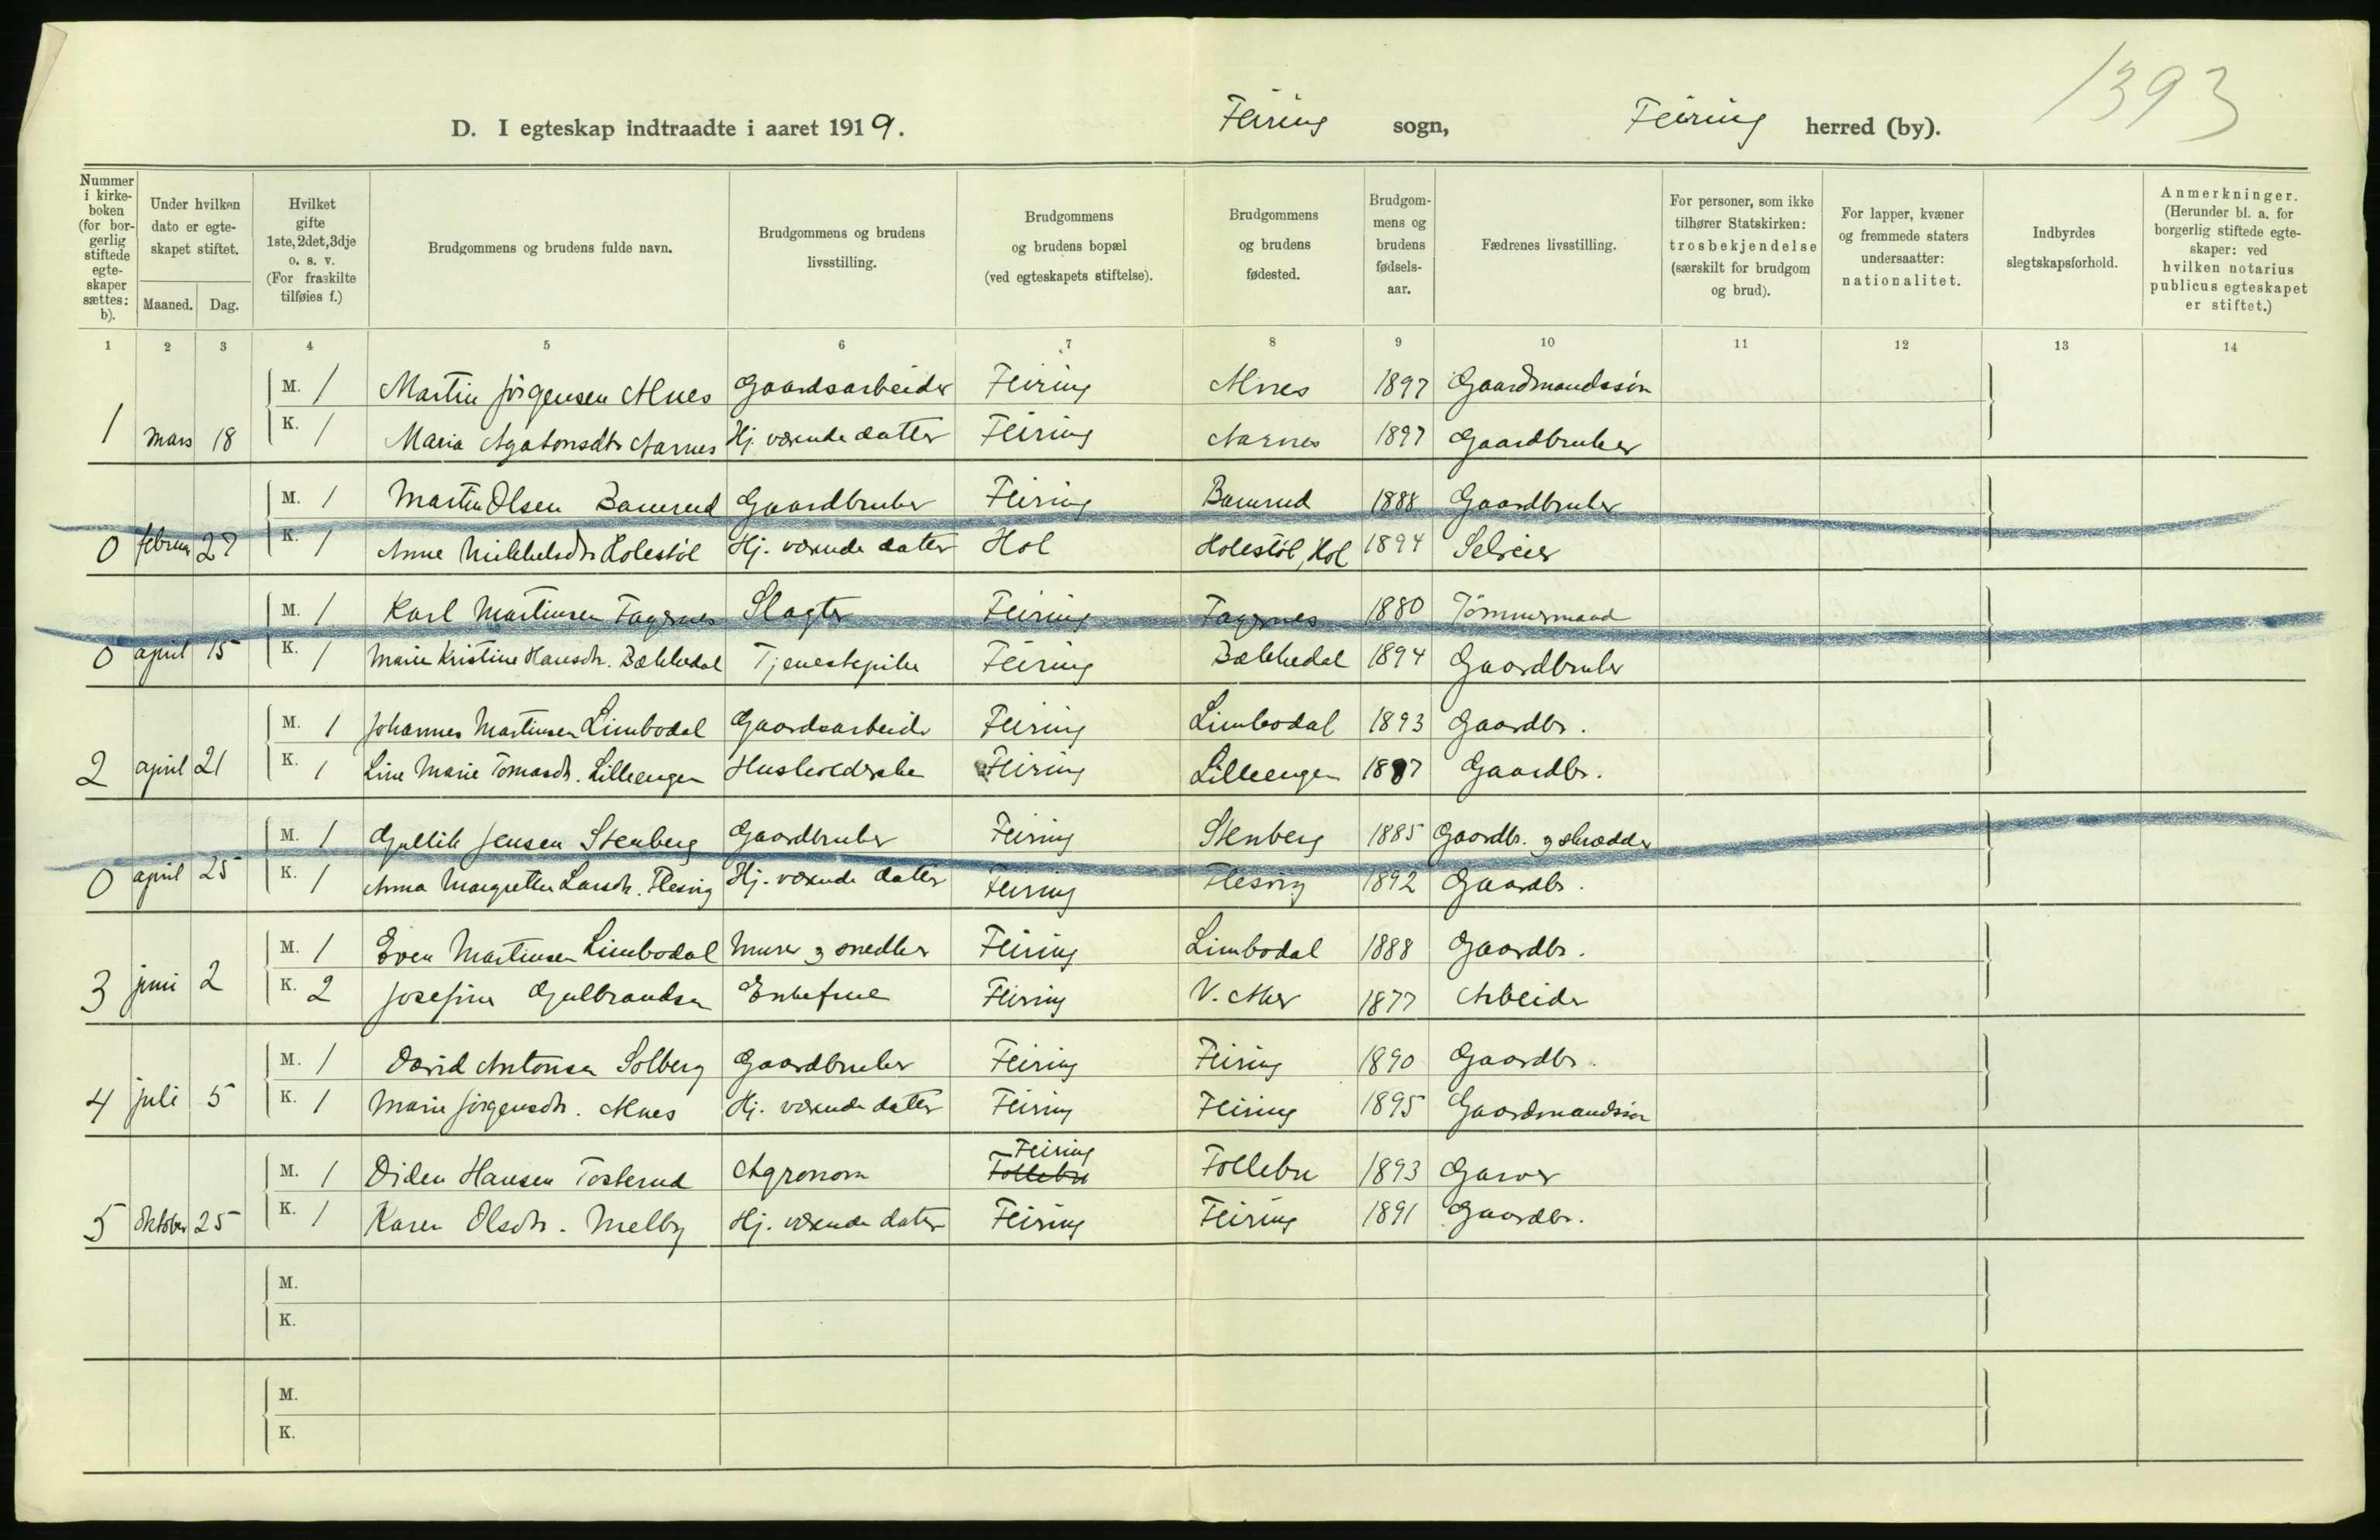 1393
D. I egteskap indtraadte i aaret 1919. Feiring sogn, Feiring herred (by).
Nummer i kirke-boken (for bor-gerlig stiftede egte-skaper sættes: b).
Under hvilken dato er egte-skapet stiftet.
Maaned. Dag.
Hvilket gifte 1ste, 2det, 3dje o. s. v. (For fraskilte tilføies f.)
Brudgommens og brudens fulde navn.
Brudgommens og brudens livsstilling.
Brudgommens og brudens bopæl (ved egteskapets stiftelse).
Brudgommens og brudens fødested.
Brudgom-mens og brudens fødsels-aar.
Fædrenes livsstilling.
For personer, som ikke tilhører Statskirken: trosbekjendelse (særskilt for brudgom og brud).
For lapper, kvæner og fremmede staters undersaatter: nationalitet.
Indbyrdes slegtskapsforhold.
Anmerkninger. (Herunder bl. a. for borgerlig stiftede egte-skaper: ved hvilken notarius publicus egteskapet er stiftet.)
1 2 3 4 5 6 7 8 9 10 11 12 13 14
M. 1 Martin Jørgensen Alnes Gaardsarbeider Feiring Alnes 1897 Gaardmandssøn
1 mars 18 K. 1 Maria Agatonsdtr Aarnes Hj. værende datter Feiring Aarnes 1897 Gaardbruker
M. 1 Martin Olsen Baurud Gaardbruker Feiring Baurud 1888 Gaardbruker
0 februar 27 K. 1 Anne Mikkelsdtr Holestöl Hj. værende datter Hol Holestöl, Hol 1894 Selveier
M. 1 Karl Martinsen Fagernes Slagter Feiring Fagernes 1880 Tömmermand
0 april 15 K. 1 Marie Kristine Hansdtr. Bækkedal Tjenestepike Feiring Bækkedal 1894 Gaardbruker
M. 1 Johannes Martinsen Limbodal Gaardsarbeider Feiring Limbodal 1893 Gaardbr.
2 april 21 K. 1 Line Marie Tomasdr. Lilleengen Husholderske Feiring Lilleengen 1887 Gaardbr.
M. 1 Gullik Jensen Stenberg Gaardbruker Feiring Stenberg 1885 Gaardbr. og skrædder
0 april 25 K. 1 Anna Margrethe Larsdr. Flesvig Hj. værende datter Feiring Flesvig 1892 Gaardbr.
M. 1 Even Martinsen Limbodal Murer og snedker Feiring Limbodal 1888 Gaardbr.
3 juni 2 K. 2 Josefine Gulbrandsen Enkefrue Feiring V. Aker 1877 Arbeider
M. 1 David Antonsen Solberg Gaardbruker Feiring Feiring 1890 Gaardbr.
4 juli 5 K. 1 Marie Jørgensdr. Alnes Hj. værende datter Feiring Feiring 1895 Gaardmandssøn
Feiring
M. 1 Diden Hansen Tosterud Agronom Follebu Follebu 1893 Garver
5 Oktober 25 K. 1 Karen Olsdtr. Melby Hj. værende datter Feiring Feiring 1891 Gaardbr.
M.
K.
M.
K.